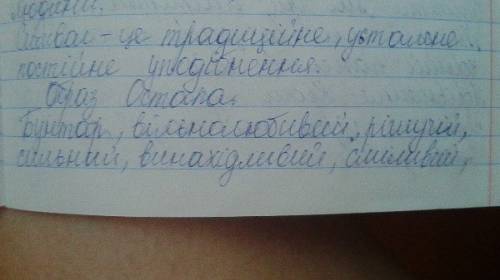 людини.
Символ - це традиційне, усталене,
постійне уподібнення.
Образ Остапа.
Бунтар, вільналюбивий, рішучий,
сильний, винахідливий, сміливий,